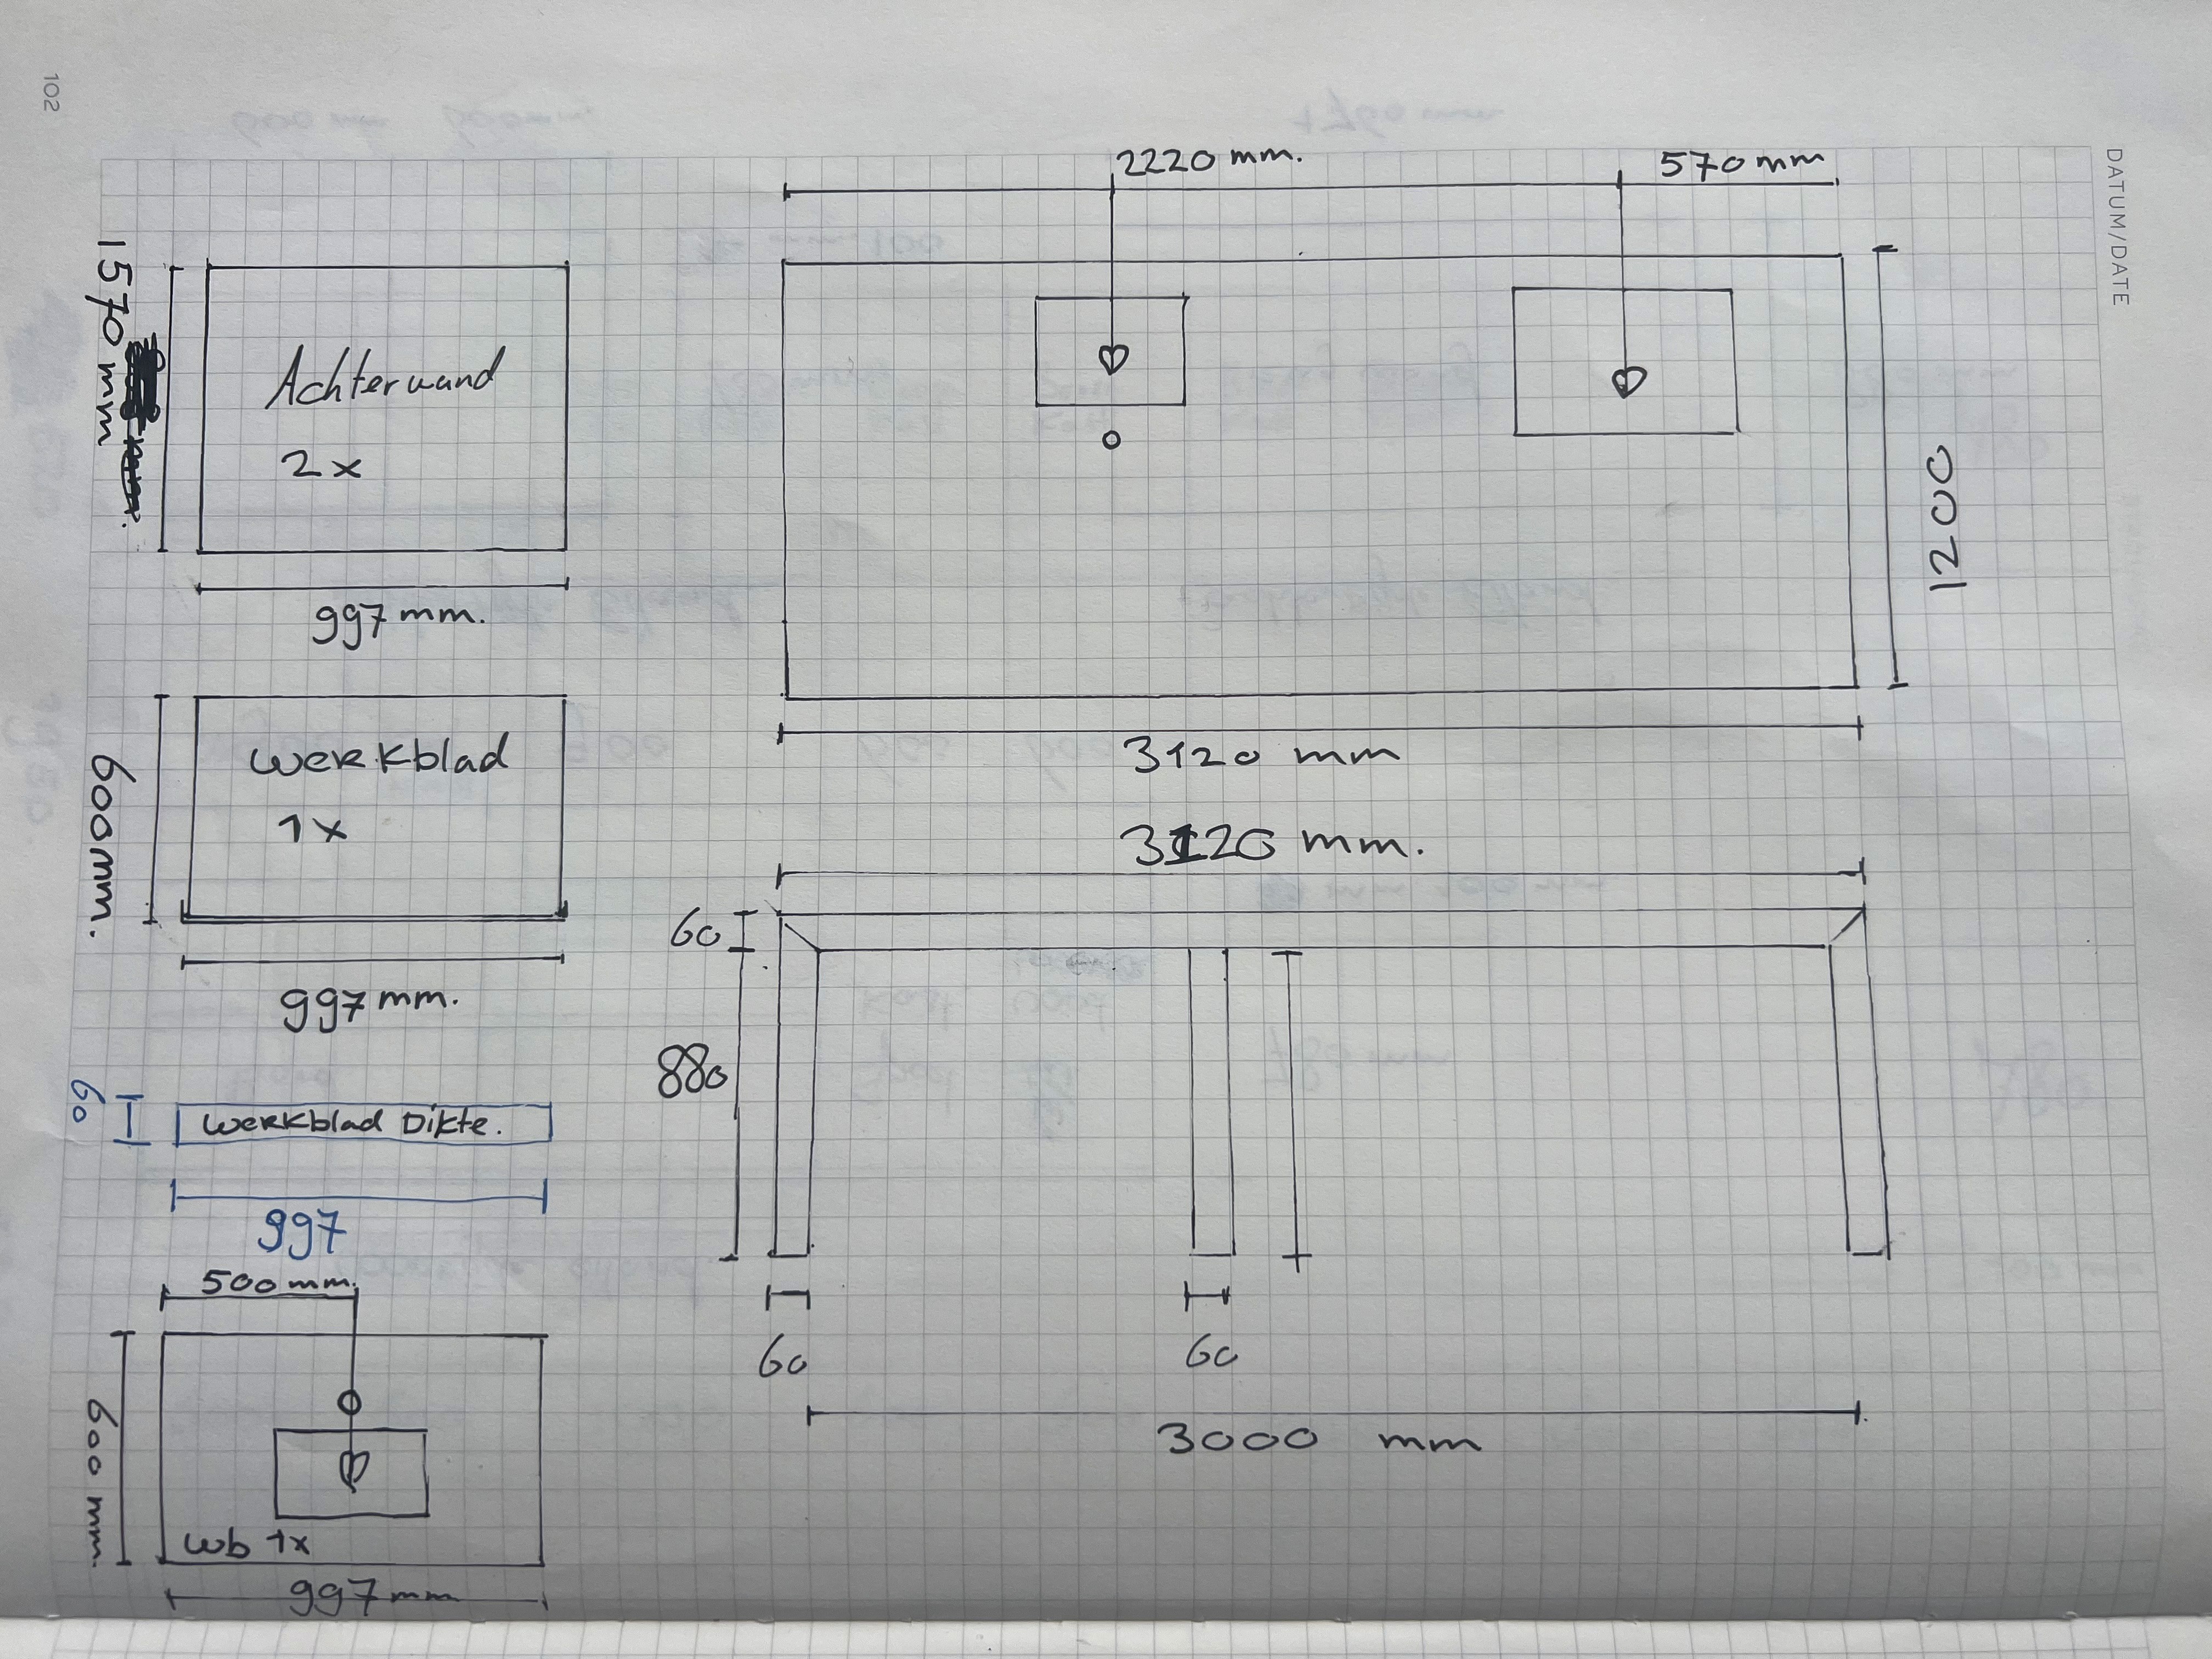 102
DATUM/DATE
2220 mm.
570 mm
1570 mm
Achterwand
2x
997 mm.
1200
3120 mm
600 mm.
Werkblad
1x
997 mm.
3120 mm.
60
880
60
60
3000 mm
60
Werkblad Dikte.
997
500 mm.
600 mm.
wb 1x
997 mm